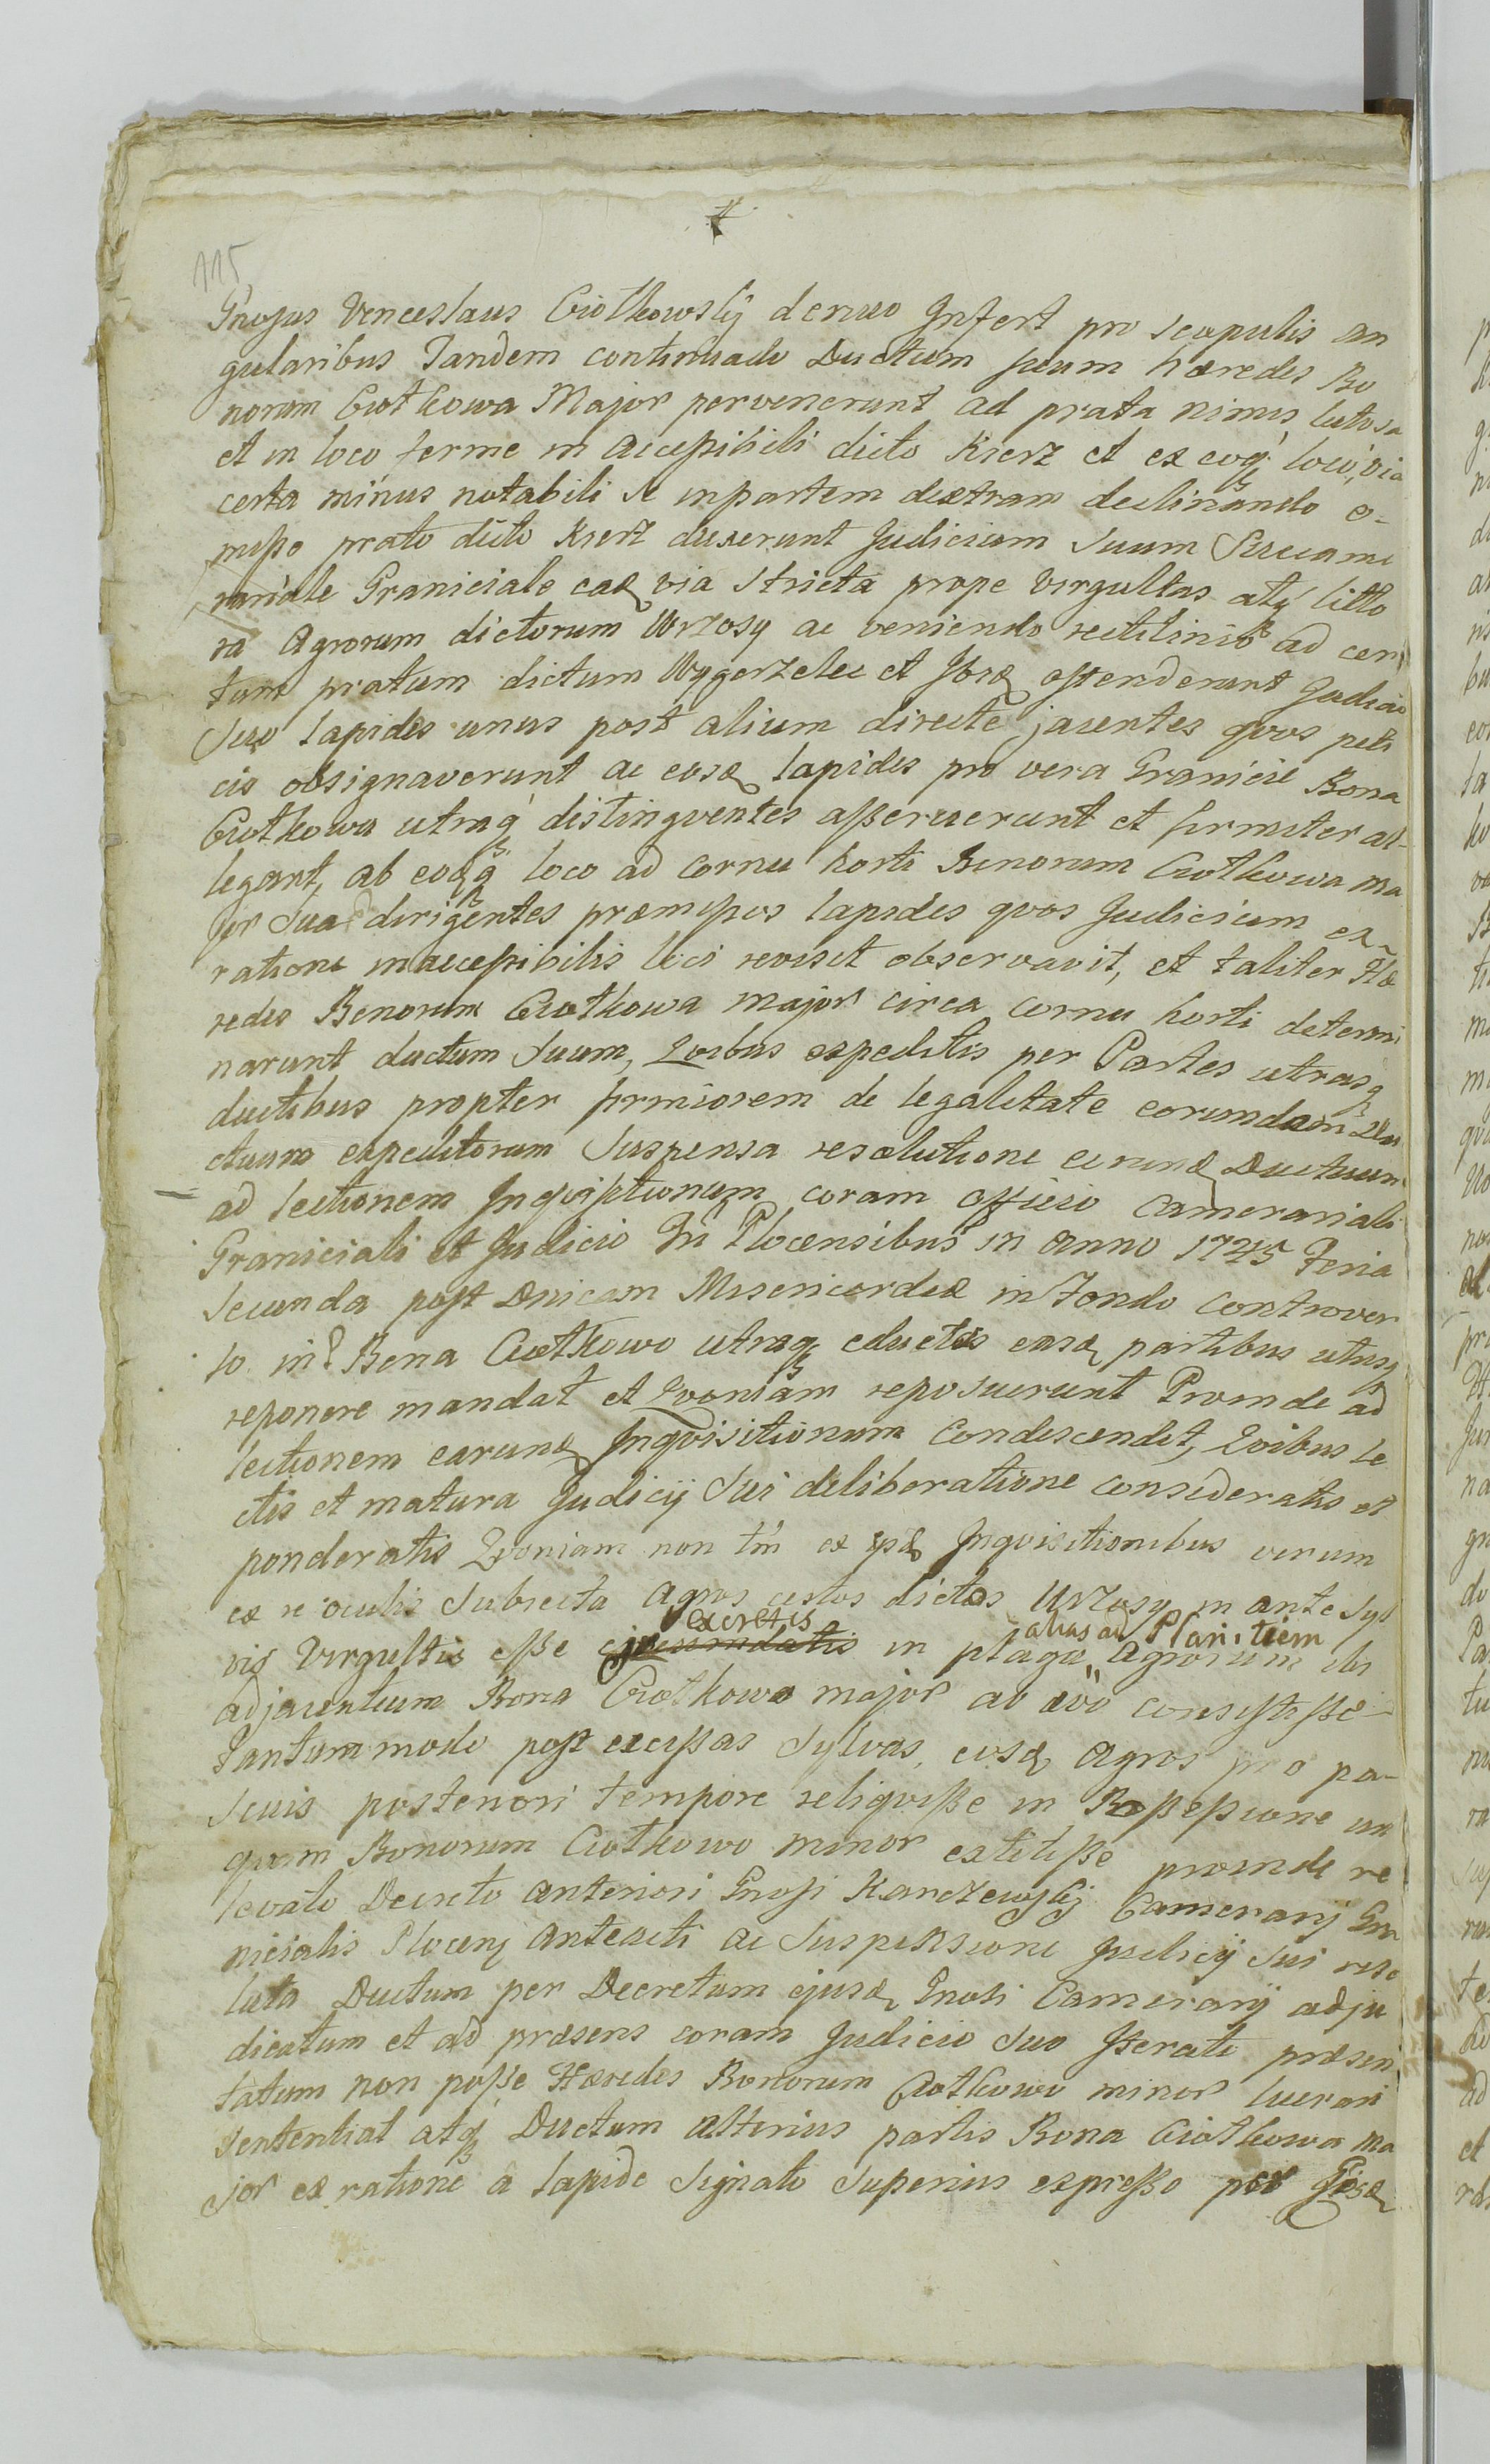 115
Gnosus Venceslaus Ciotkowskij denuo Infert pro scopulis an
gularibus Tandem continuado Ductum suum hæredes Bo
norum Ciotkowa Major pervenerunt ad prata nimis lutosa
et in loco ferme in accessibili dicto Kierz et ex eoq. loco, via
certa minus notabili se in partem dextram declinando o-
misso prato dicto Kierz duxerunt Judicium Suum Succame
rariale Graniciale eaq via stricta prope virgultas atq litto
ra Agrorum dictorum Wrzosy ac veniendo rectilinio ad cer
tum pratum dictum Wygorzelec et Ibiq ostenderunt Judicio
Suo lapides unus post alium directe jacentes qvos peti
cis obsignaverunt ac eosq lapides pro vera Granicie Bona
Ciotkowa utraq distingventes asseruerunt et firmiter al-
legant, ab eodq loco ad cornu horti Bonorum Ciotkowa ma
jor Sua dirigentes præmissos lapides qvos Judicium ex
ratione inaccessibilis loci revisit observavit, et taliter Hæ
redes Bonorum Ciotkowa major circa cornu horti determi
narunt ductum Suum, Qvibus expeditis per Partes utrasq
ductibus propter firmiorem de legalitate eorundem Du
ctuum expeditorum Suspensa resolutione eorund Ductuum
ad lectionem Inqvisitionum coram officio Camerariali
Graniciali et Judicio Plocensibus in anno 1745 Feria
Secunda post Dnicam Misericordiæ in Fondo controver
so in? Bona Ciotkowo utraq eductas easq partibus utrisq
reponere mandat et Qvoniam reposuerunt Proinde ad
lectionem earund Inqvisitionum Condescendit, Qvibus le
ctis et matura Judicij Sui deliberatione consideratis et
ponderatis Qvoniam non tm ex ipsis Inqvisitionibus verum
ex re oculis Subjecta agros istos dictos Wrzosy in ante Syl
vis Virgultis esse excretis in plaga alias ad Planitiem agrorum ibi
adjacentium Bona Ciotkowo major ab ævo constitisse
Tantummodo post excissas Sylvas, eosq Agros pro pa-
scuis posteriori tempore reliqvisse in Possessione un
quam Bonorum Ciotkowo minor extitisse proinde re
levato Decreto anteriori Gnosi Karczewskij Camerarij Gra
nicialis Plocen antelati ac Suspensione Judicij Sui reso
luta Ductum per Decretum ejusd Gnosi Camerarij adju
dicatum et ad præsens coram Judicio Suo Iterato præsen
tatum non posse Hæredes Bonorum Ciotkowo minor lucrari
Sententiat atq Ductum alterius partis Bona Ciotkowa ma
jor ex ratione a lapide Signato Superius expresso per